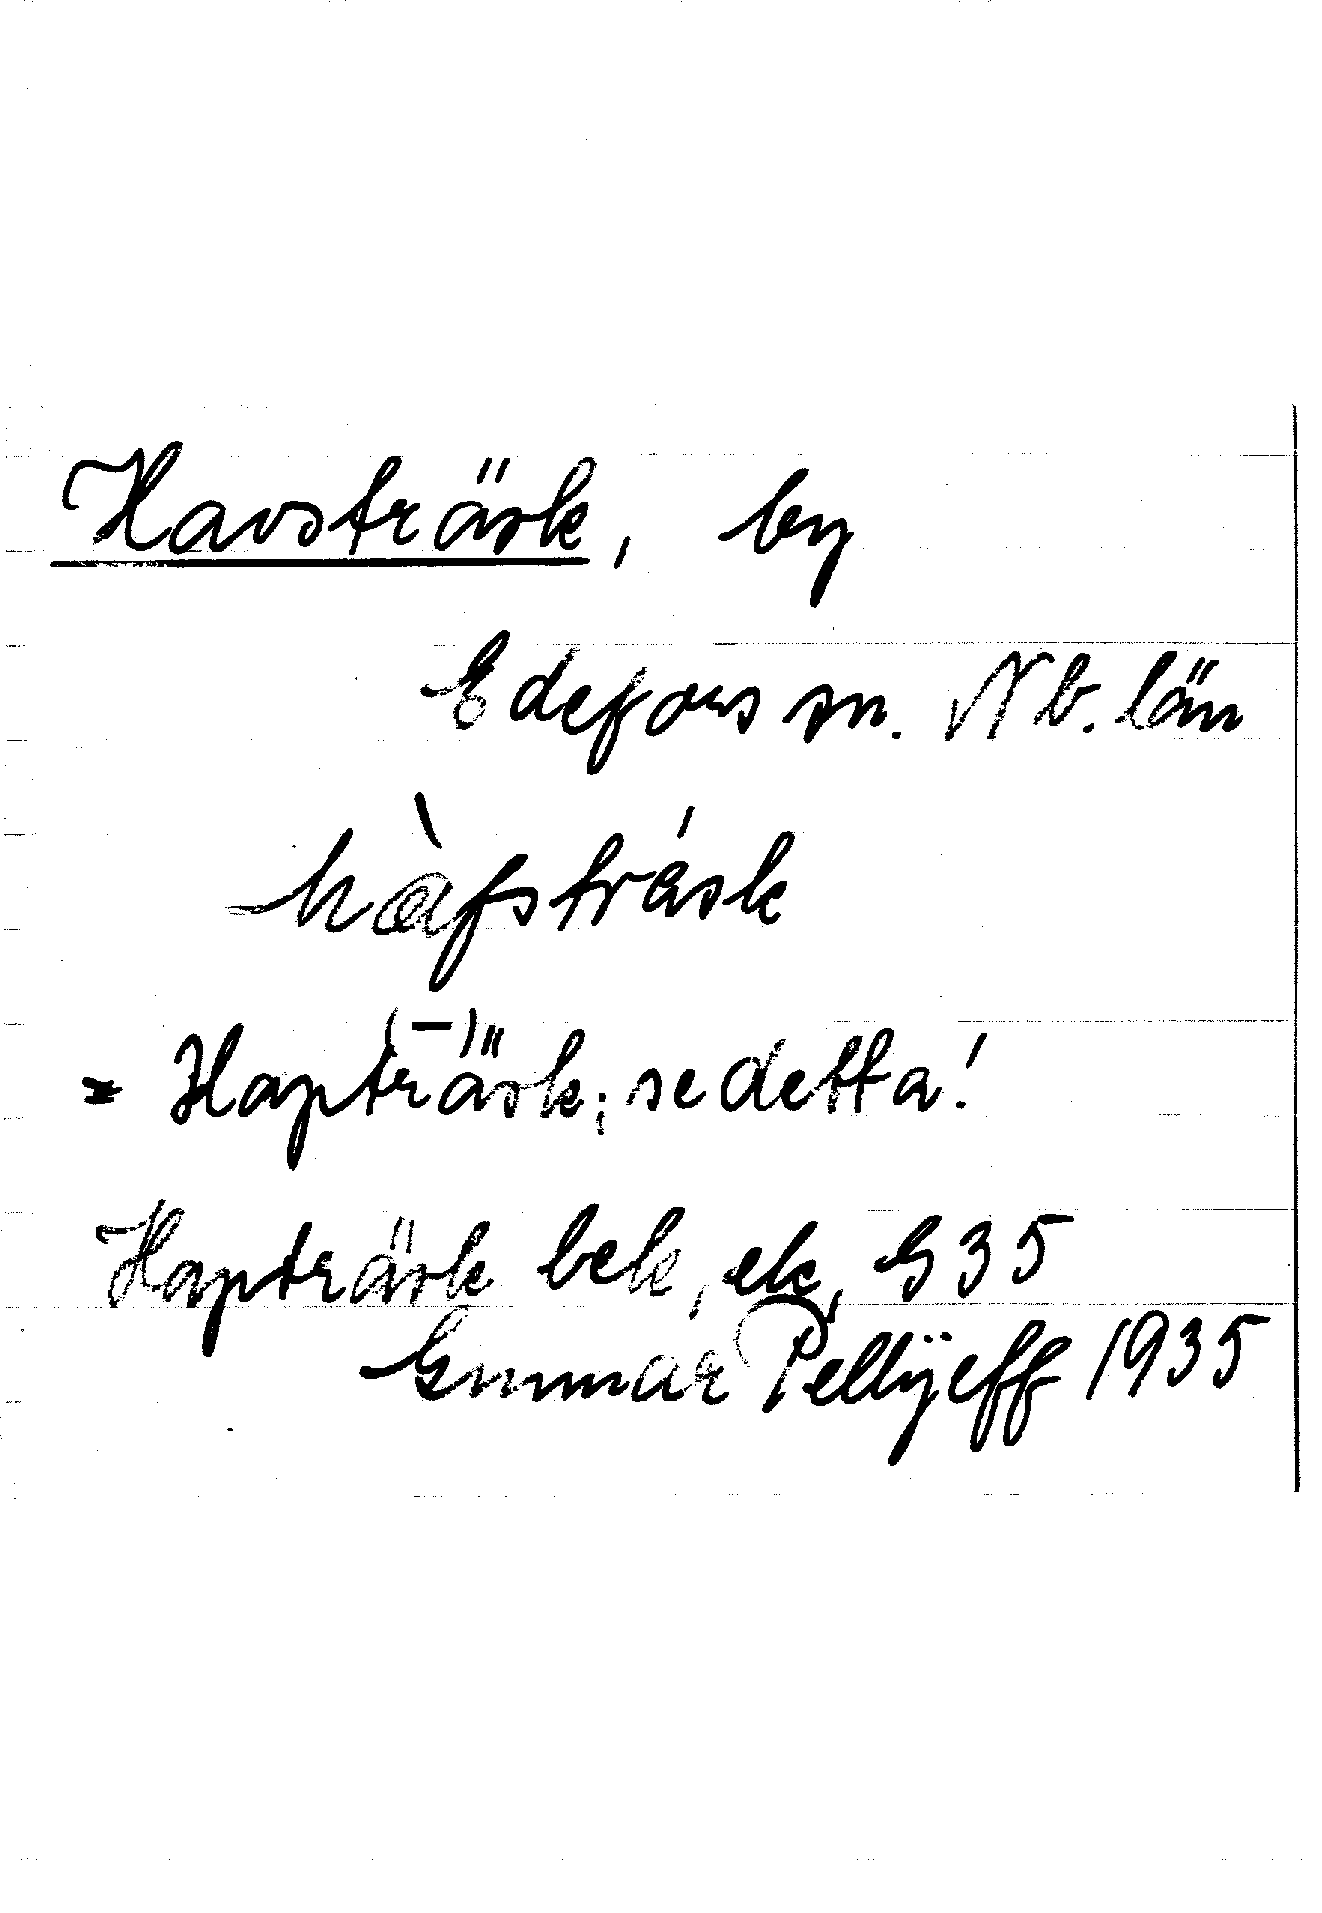 Havsträsk, by
Edefors sn. Nb. län
hàfstrásk
= Hap(-)träsk; se detta!
Hapträsk bek, ek, G35
Gunnar Pellijeff 1935